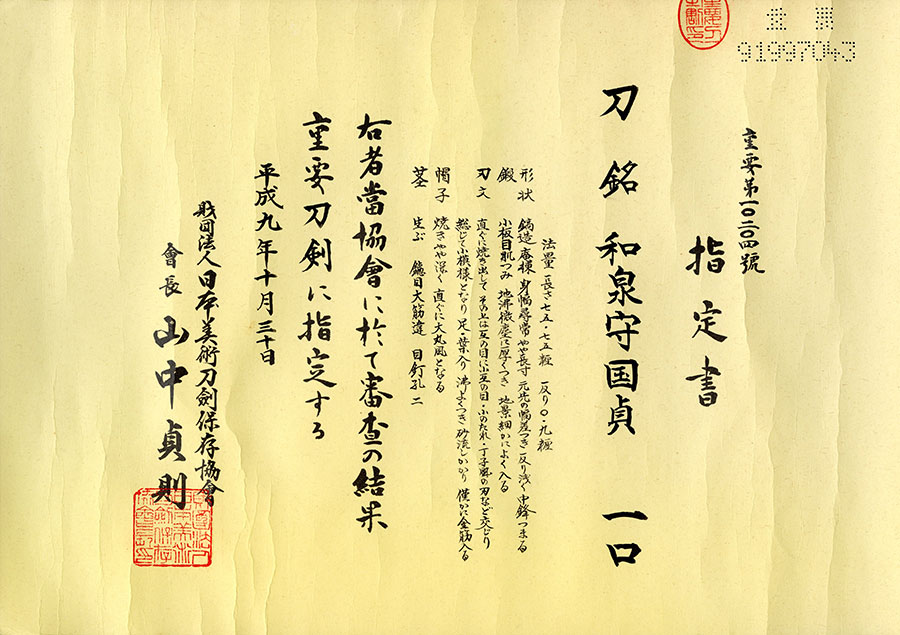 91997043
重要第一〇二〇四號
指定書
刀 銘 和泉守国貞 一口
法量 長さ七五・七五糎 反り〇・九糎
形状 鎬造 庵棟 身幅尋常 やや長寸 元先の幅差つき 反り浅く 中鋒つまる
鍛 小板目肌つみ 地沸微塵に厚くつき 地景細かによく入る
刃文 直ぐに焼き出して その上は互の目に小互の目・小のたれ・丁子風の刃など交じり
総じて小模様となり 足・葉入り 沸よくつき 砂流しかかり 僅かに金筋入る
帽子 焼きやや深く 直ぐに大丸風となる
茎 生ぶ 鑢目大筋違 目釘孔二
右者當協會に於て審査の結果
重要刀剣に指定する
平成九年十月三十日
財団法人日本美術刀劍保存協會
會長 山中貞則